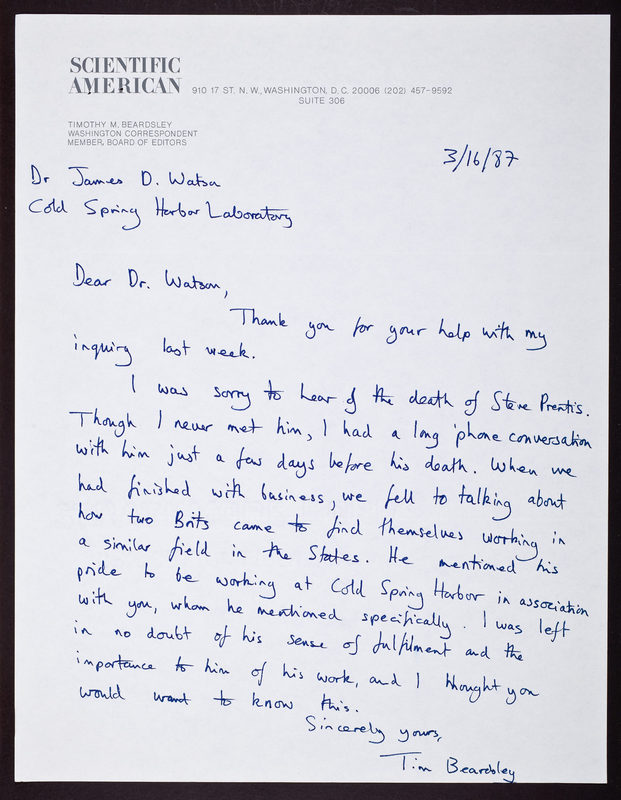 SCIENTIFIC
AMERICAN 910 17 ST. N. W., WASHINGTON, D. C. 20006 (202) 457-9592
SUITE 306
TIMOTHY M. BEARDSLEY
WASHINGTON CORRESPONDENT
MEMBER, BOARD OF EDITORS
3/16/87
Dr James D. Watson
Cold Spring Harbor Laboratory
Dear Dr. Watson,
Thank you for your help with my
inquiry last week.
I was sorry to hear of the death of Steve Prentis.
Though I never met him, I had a long 'phone conversation
with him just a few days before his death. When we
had finished with business, we fell to talking about
how two Brits came to find themselves working in
a similar field in the States. He mentioned his
pride to be working at Cold Spring Harbor in association
with you, whom he mentioned specifically. I was left
in no doubt of his sense of fulfilment and the
importance to him of his work, and I thought you
would want to know this.
Sincerely yours,
Tim Beardsley